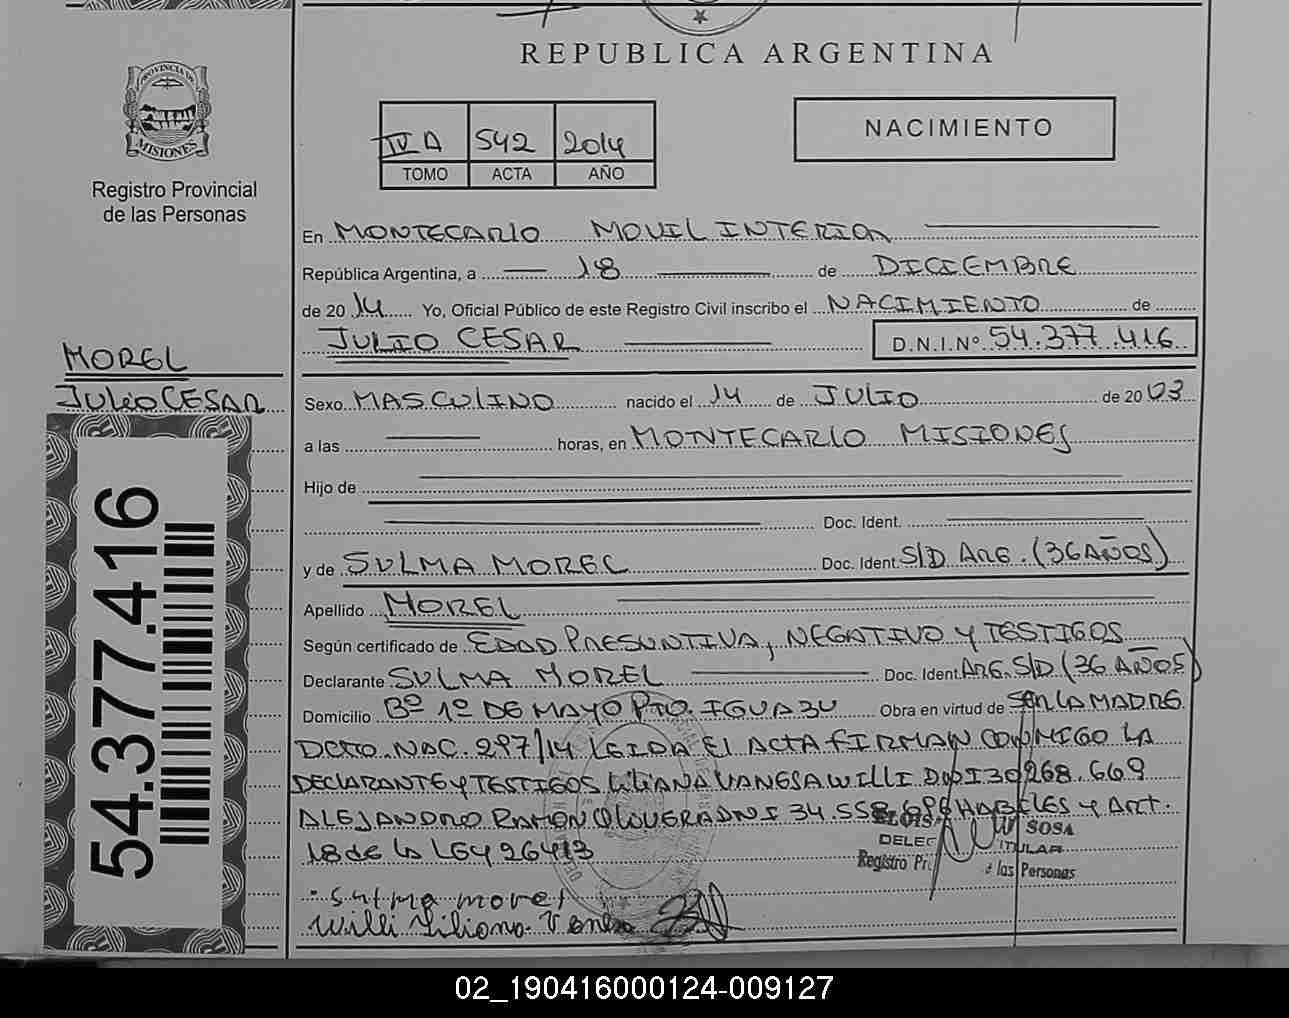 REPUBLICA ARGENTINA
PROVINCIA DE
MISIONES
Registro Provincial
de las Personas
IV A 542 2014
TOMO ACTA AÑO
NACIMIENTO
En MONTECARLO MOVIL INTERIOR
República Argentina, a 18 de DICIEMBRE
de 2014 Yo, Oficial Público de este Registro Civil inscribo el NACIMIENTO de
JULIO CESAR D.N.I.Nº 54.377.416
MOREL
JULIO CESAR
Sexo MASCULINO nacido el 14 de JULIO de 2003
a las horas, en MONTECARLO MISIONES
Hijo de
Doc. Ident.
y de SULMA MOREL Doc. Ident. S/D ARG. (36 AÑOS)
Apellido MOREL
Según certificado de EDAD PRESUNTIVA, NEGATIVO Y TESTIGOS
Declarante SULMA MOREL Doc. Ident. ARG. S/D (36 AÑOS)
Domicilio Bº 1º DE MAYO PTO. IGUAZU Obra en virtud de SER LA MADRE
DCTO. NAC. 297/14 LEIDA EL ACTA FIRMAN CONMIGO LA
DECLARANTE Y TESTIGOS LILIANA VANESA WILLI DNI 30268.669
ALEJANDRO RAMON DNI 34.558. HABILES Y ART.
18 de la LEY 26413
SOSA
DELEG TITULAR
Registro Pr de las Personas
Sulma morel
Willi Liliana Vanesa
54.377.416
02_190416000124-009127